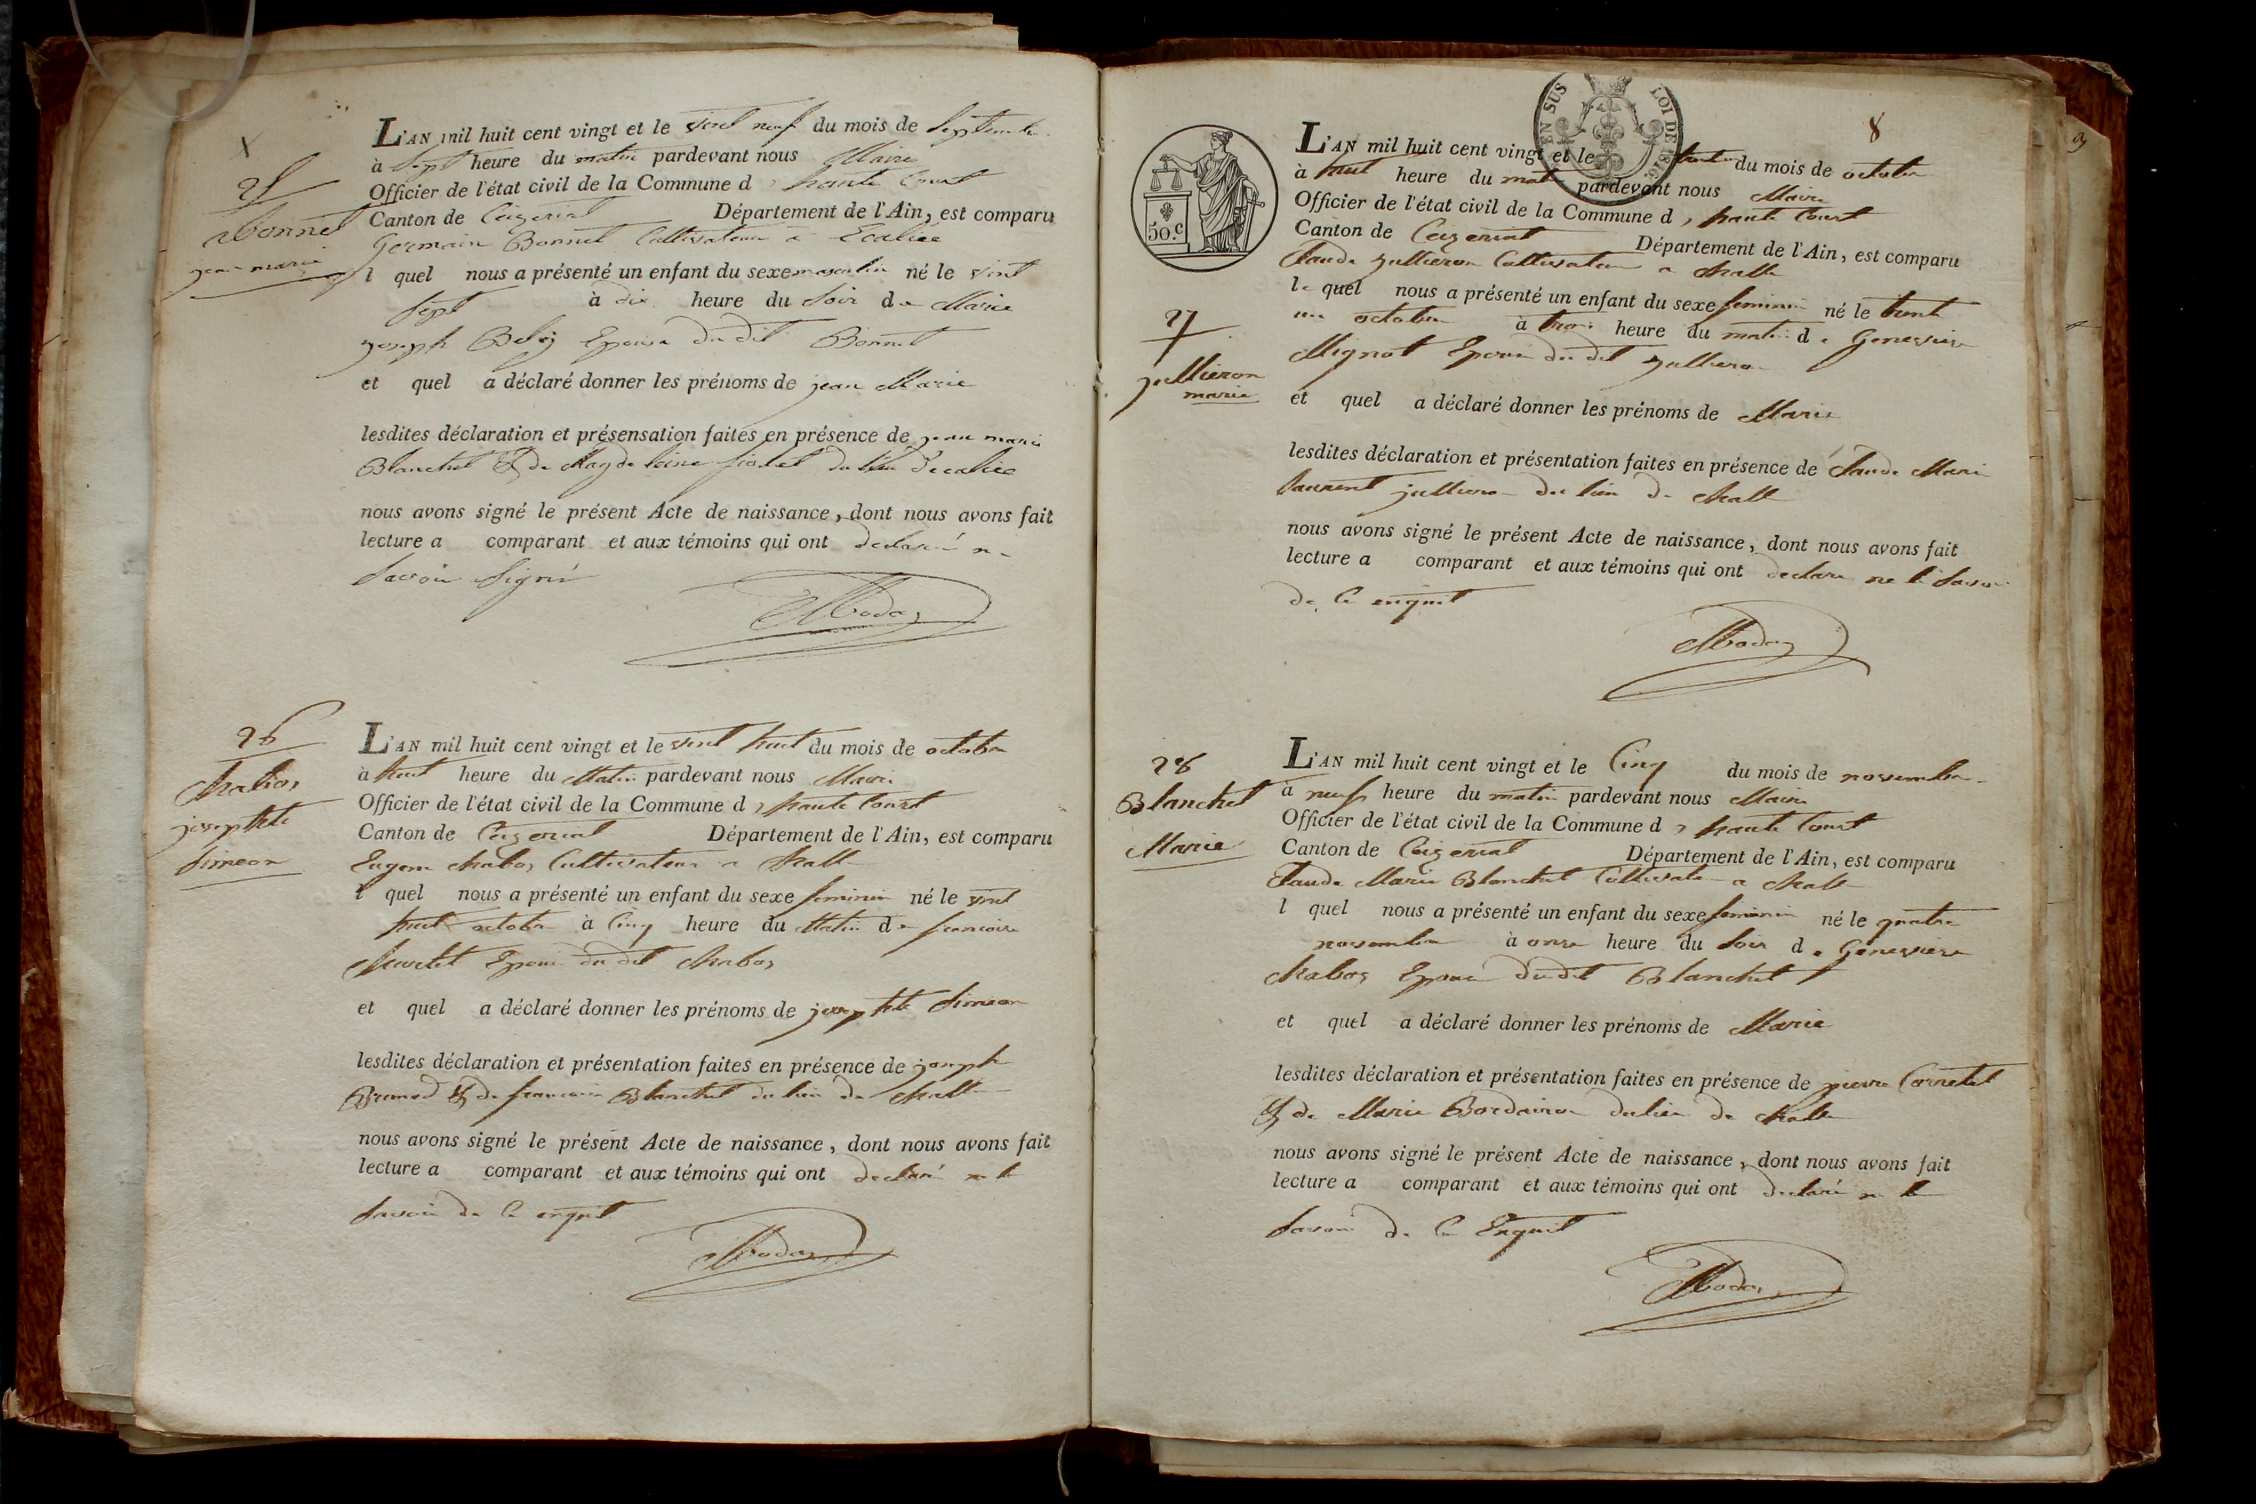 25
Bonnet
jean marie
L'AN mil huit cent vingt et le vint neuf du mois de Septembre
à Sept heure du matin pardevant nous Maire
Officier de l'état civil de la Commune d haute Court
Canton de Ceizeriat Département de l'Ain, est comparu
Germain Bonnet Cultivateur a
l quel nous a présenté un enfant du sexe masculin né le vint
Sept à dix heure du Soir de Marie
joseph Epouse du dit Bonnet
et quel a déclaré donner les prénoms de jean Marie
lesdites déclaration et présensation faites en présence de jean marie
Blanchet & de Magdeleine du lieu
nous avons signé le présent Acte de naissance, dont nous avons fait
lecture a comparant et aux témoins qui ont declaré ne
Savoir Signé
26
Chabos
josephte
Simeon
L'AN mil huit cent vingt et le vint huit du mois de octobre
à huit heure du Matin pardevant nous Maire
Officier de l'état civil de la Commune d haute Court
Canton de Ceizeriat Département de l'Ain, est comparu
Eugene Chabos Cultivateur a Challe
l quel nous a présenté un enfant du sexe feminin né le vint
huit octobre à Cinq heure du Matin de francoise
Epouse du dit Chabos
et quel a déclaré donner les prénoms de josephte Simeon
lesdites déclaration et présentation faites en présence de joseph
& de francoise Blanchet du lieu de Challe
nous avons signé le présent Acte de naissance, dont nous avons fait
lecture a comparant et aux témoins qui ont declaré ne le
Savoir de ce enquit
8
EN SUS LOI DE 1816.
50.c
27
jullieron
marie
L'AN mil huit cent vingt et le trente du mois de octobre
à huit heure du matin pardevant nous Maire
Officier de l'état civil de la Commune d haute Court
Canton de Ceizeriat Département de l'Ain, est comparu
Claude jullieron Cultivateur a Challe
le quel nous a présenté un enfant du sexe feminin né le trente
un octobre à trois heure du matin de Genevieve
Mignot Epouse du dit jullieron
et quel a déclaré donner les prénoms de Marie
lesdites déclaration et présentation faites en présence de Claude Marie
Laurent jullieron du lieu de Challe
nous avons signé le présent Acte de naissance, dont nous avons fait
lecture a comparant et aux témoins qui ont declaré ne le Savoir
de ce enquit
28
Blanchet
Marie
L'AN mil huit cent vingt et le Cinq du mois de novembre
à neuf heure du matin pardevant nous Maire
Officier de l'état civil de la Commune d haute Court
Canton de Ceizeriat Département de l'Ain, est comparu
Claude Marie Blanchet Cultivateur a Challe
l quel nous a présenté un enfant du sexe feminin né le quatre
novembre à onze heure du Soir de Genevieve
Chabos Epouse du dit Blanchet
et quel a déclaré donner les prénoms de Marie
lesdites déclaration et présentation faites en présence de pierre Corretet
& de Marie du lieu de Challe
nous avons signé le présent Acte de naissance, dont nous avons fait
lecture a comparant et aux témoins qui ont declaré ne le
Savoir de ce Enquit